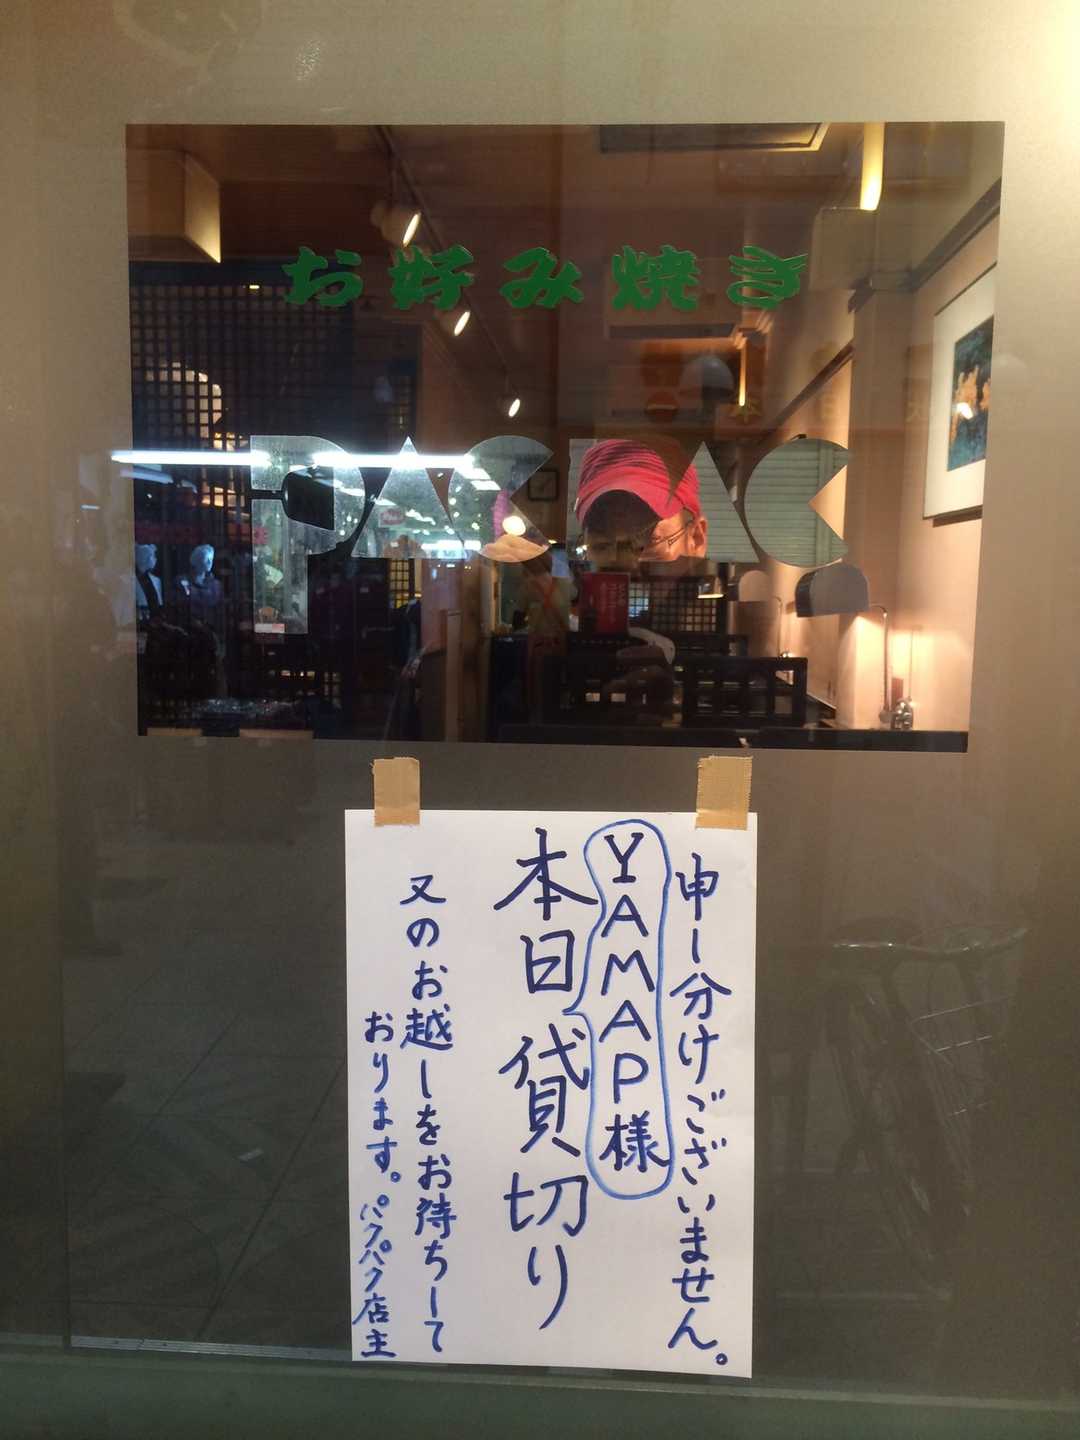 お好み焼き
PACPAC
申し分けございません。
YAMAP様
本日貸切り
又のお越しをお待ちして
おります。パクパク店主